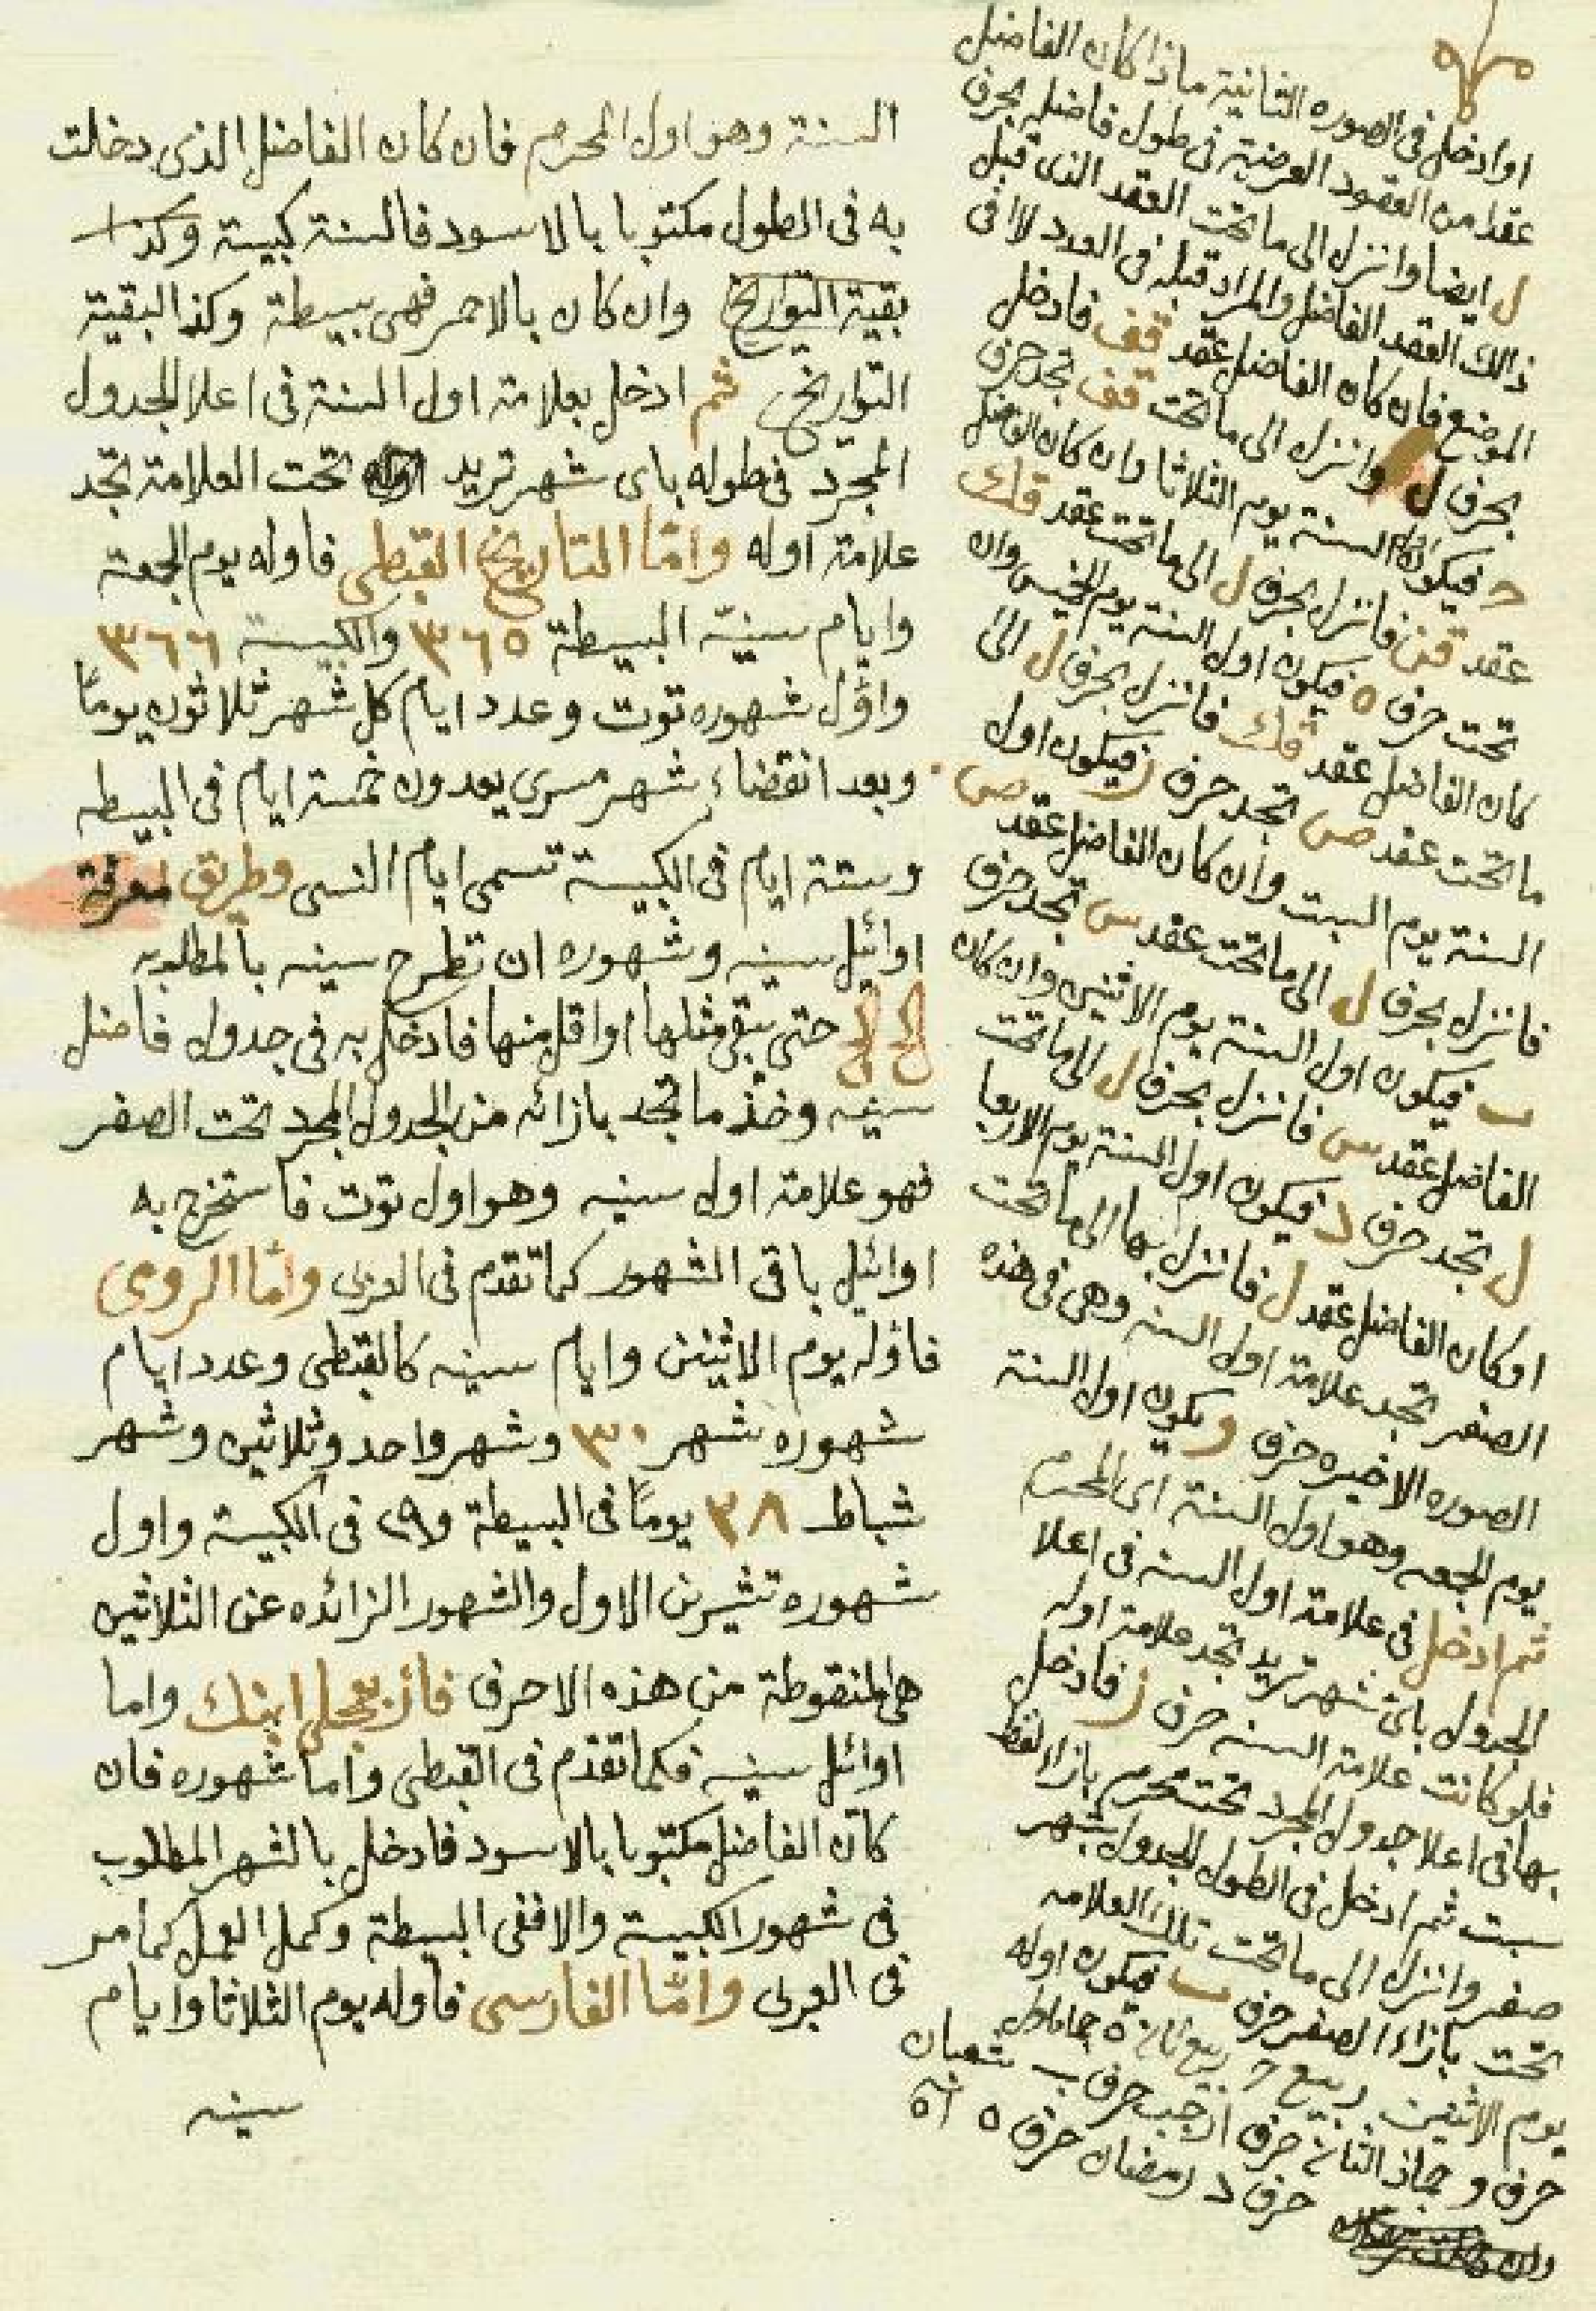 السنة وهو اول المحرم فان كان الفاضل الذى دخلت
به فى الطول مكتوبا بالاسود فالسنة كبيسة وكذا
بقية التواريخ وان كان بالاحمر فهى بسيطة وكذا البقية
التواريخ ثم ادخل بعلامة اول السنة فى اعلا الجدول
المجرد فى طوله باى شهر تريد تحت العلامة تجد
علامة اوله وامّا التاريخ القبطى فاوله يوم الجمعة
وايام سنيّه البسيطة ٣٦٥ والكبيسة ٣٦٦
واوّل شهوره توت وعدد ايام كل شهر ثلاثون يومًا
وبعد انقضاء شهر مسرى يعدون خمسة ايام فى البسيطه
وستة ايام فى الكبيسة تسمى ايام النسى وطريق معرفة
اوائيل سنيه وشهوره ان تطرح سنيه بالمطلوبه
حتى يبقى مثلها او اقل منها فادخل به فى جدول فاضل
سنيه وخذ ما تجد بازائه من الجدول المجرد تحت الصفر
فهو علامة اول سنيه وهو اول توت فاستخرج به
اوائيل باقى الشهور كما تقدم فى العربى وامّا الرومى
فاوّله يوم الاثنين وايام سنيه كالقبطى وعدد ايام
شهوره شهر ٣٠ وشهر واحد وثلاثين وشهر
شباط ٢٨ يومًا فى البسيطة و٢٩ فى الكبيسة واول
شهوره تشرين الاول والشهور الزائده عن الثلاثين
هى المنقوطة من هذه الاحرف واما
اوائل سنيه فكما تقدم فى القبطى واما شهوره فان
كان الفاضل مكتوبا بالاسود فادخل بالشهر المطلوب
فى شهور الكبيسة والا ففى البسيطة وكمل العمل كما مر
فى العربى وامّا الفارسى فاوله يوم الثلاثا وايام
سنيه
او ادخل فى الصوره الثانية ماذا كان الفاضل
عقدا من العقود العرضية فى طول فاضله بحرف
ل ايضا وانزل الى ما تحت العقد الذى قبل
ذالك العقد الفاضل والمراد قبله فى العدد لا فى
الموضع فان كان الفاضل عقد قف فادخل
بحرف ل وانزل الى ما تحت قف تجد حرف
ح فيكون السنة يوم الثلاثا وان كان الفاضل
عقد قن فانزل بحرف ل الى ما تحت عقد قك
تحت حرف ه فيكون اول السنة يوم الخميس وان
كان الفاضل عقد قك فانزل بحرف ل الى
ما تحت عقد ص تجد حرف ز فيكون اول
السنة يوم السبت وان كان الفاضل عقد ص
فانزل بحرف ل الى ما تحت عقد س تجد حرف
ب فيكون اول السنة يوم الاثنين وان كان
الفاضل عقد س فانزل بحرف ل الى ما تحت
ل تجد حرف د فيكون اول السنة يوم الاربعا
او كان الفاضل عقد ل فانزل بها الى ما تحت
الصفر تجد علامة اول السنه وهى فى هذه
الصوره الاخيره حرف و يكون اول السنة
يوم الجمعه وهو اول السنة اى المحرم
ثم ادخل فى علامة اول السنه فى اعلا
الجدول باى شهر تريد تجد علامة اوله
فلو كانت علامة السنه حرف ز فادخل
بها فى اعلا جدول المجرد تحت محرم بازاء لفظ
سبت ثم ادخل فى الطول الجدول بشهر
صفر وانزل الى ما تحت تلك العلامه
تحت بازاء الصفر حرف ب فيكون اوله
يوم الاثنين ربيع ح ربيع ثانى ه جماد اول
حرف و جماد الثانى حرف ا رجب حرف ب شعبان
حرف د رمضان حرف ه